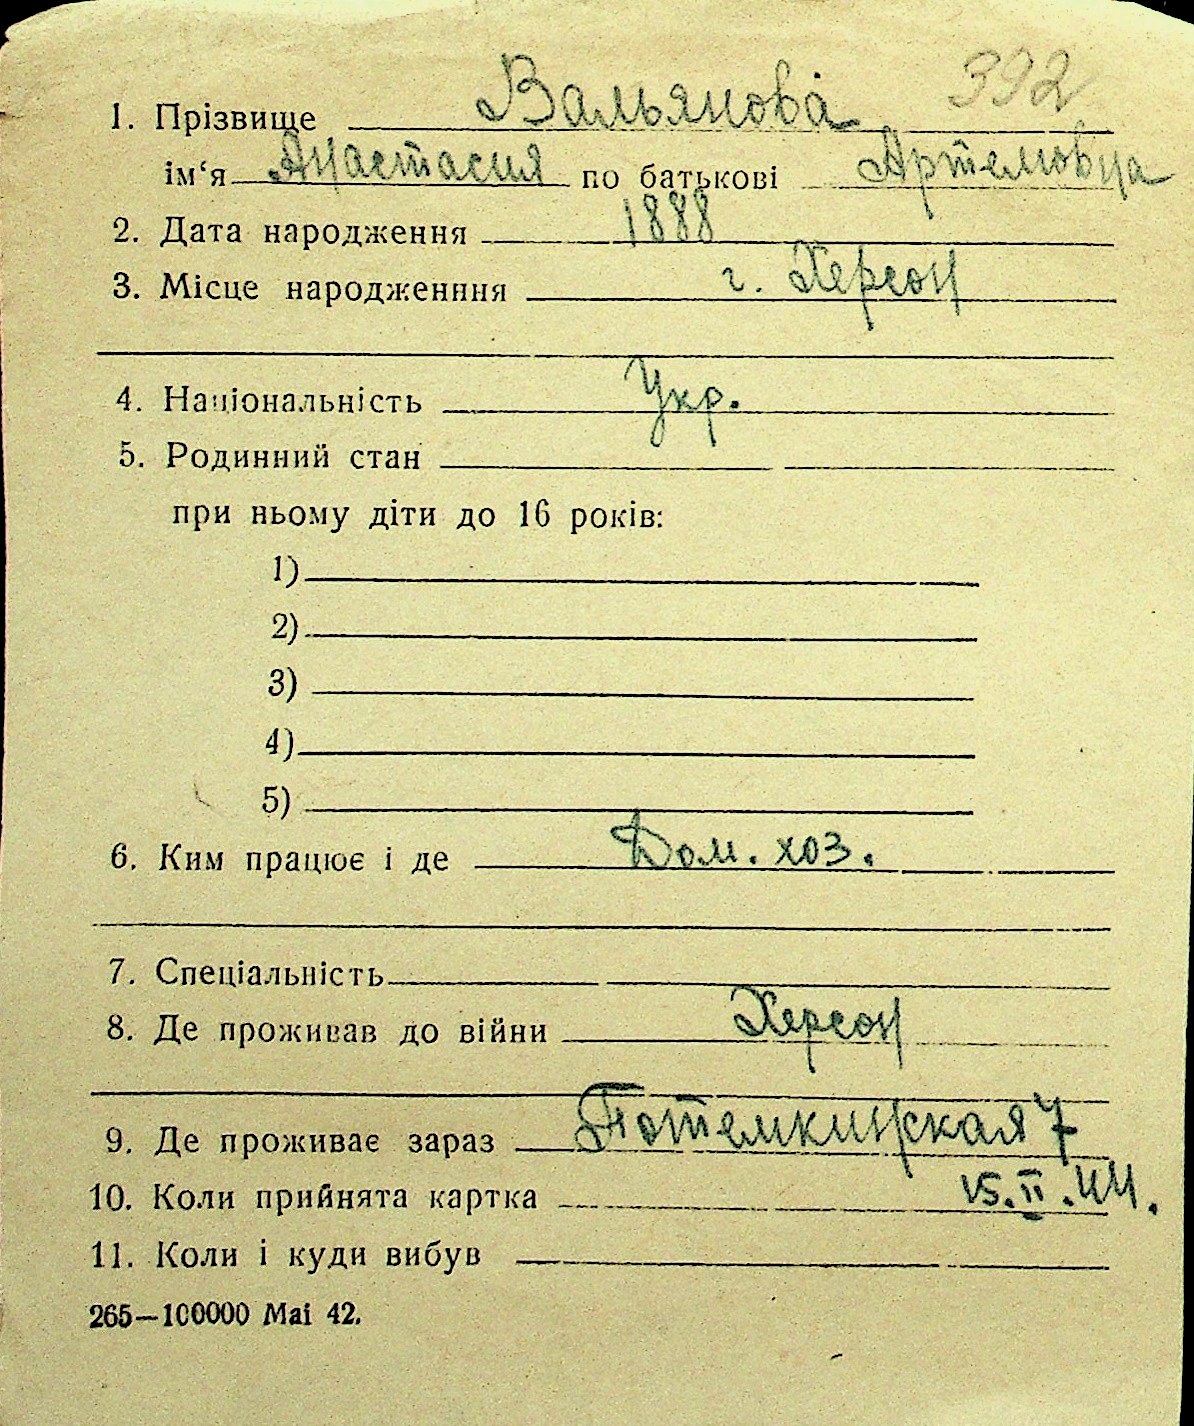 392
1. Прізвище Вальянова
ім‘я Анастасия по батькові Артемовна
2. Дата народження 1888
3. Місце народженння г. Херсон
4. Національність Укр.
5. Родинний стан
при ньому діти до 16 років:
1)
2)
3)
4)
5)
6. Ким працює і де Дом. хоз.
7. Спеціальність
8. Де проживав до війни Херсон
9. Де проживає зараз Потемкинская 7
10. Коли прийнята картка 15.II.44.
11. Коли і куди вибув
265—100000 Mai 42.